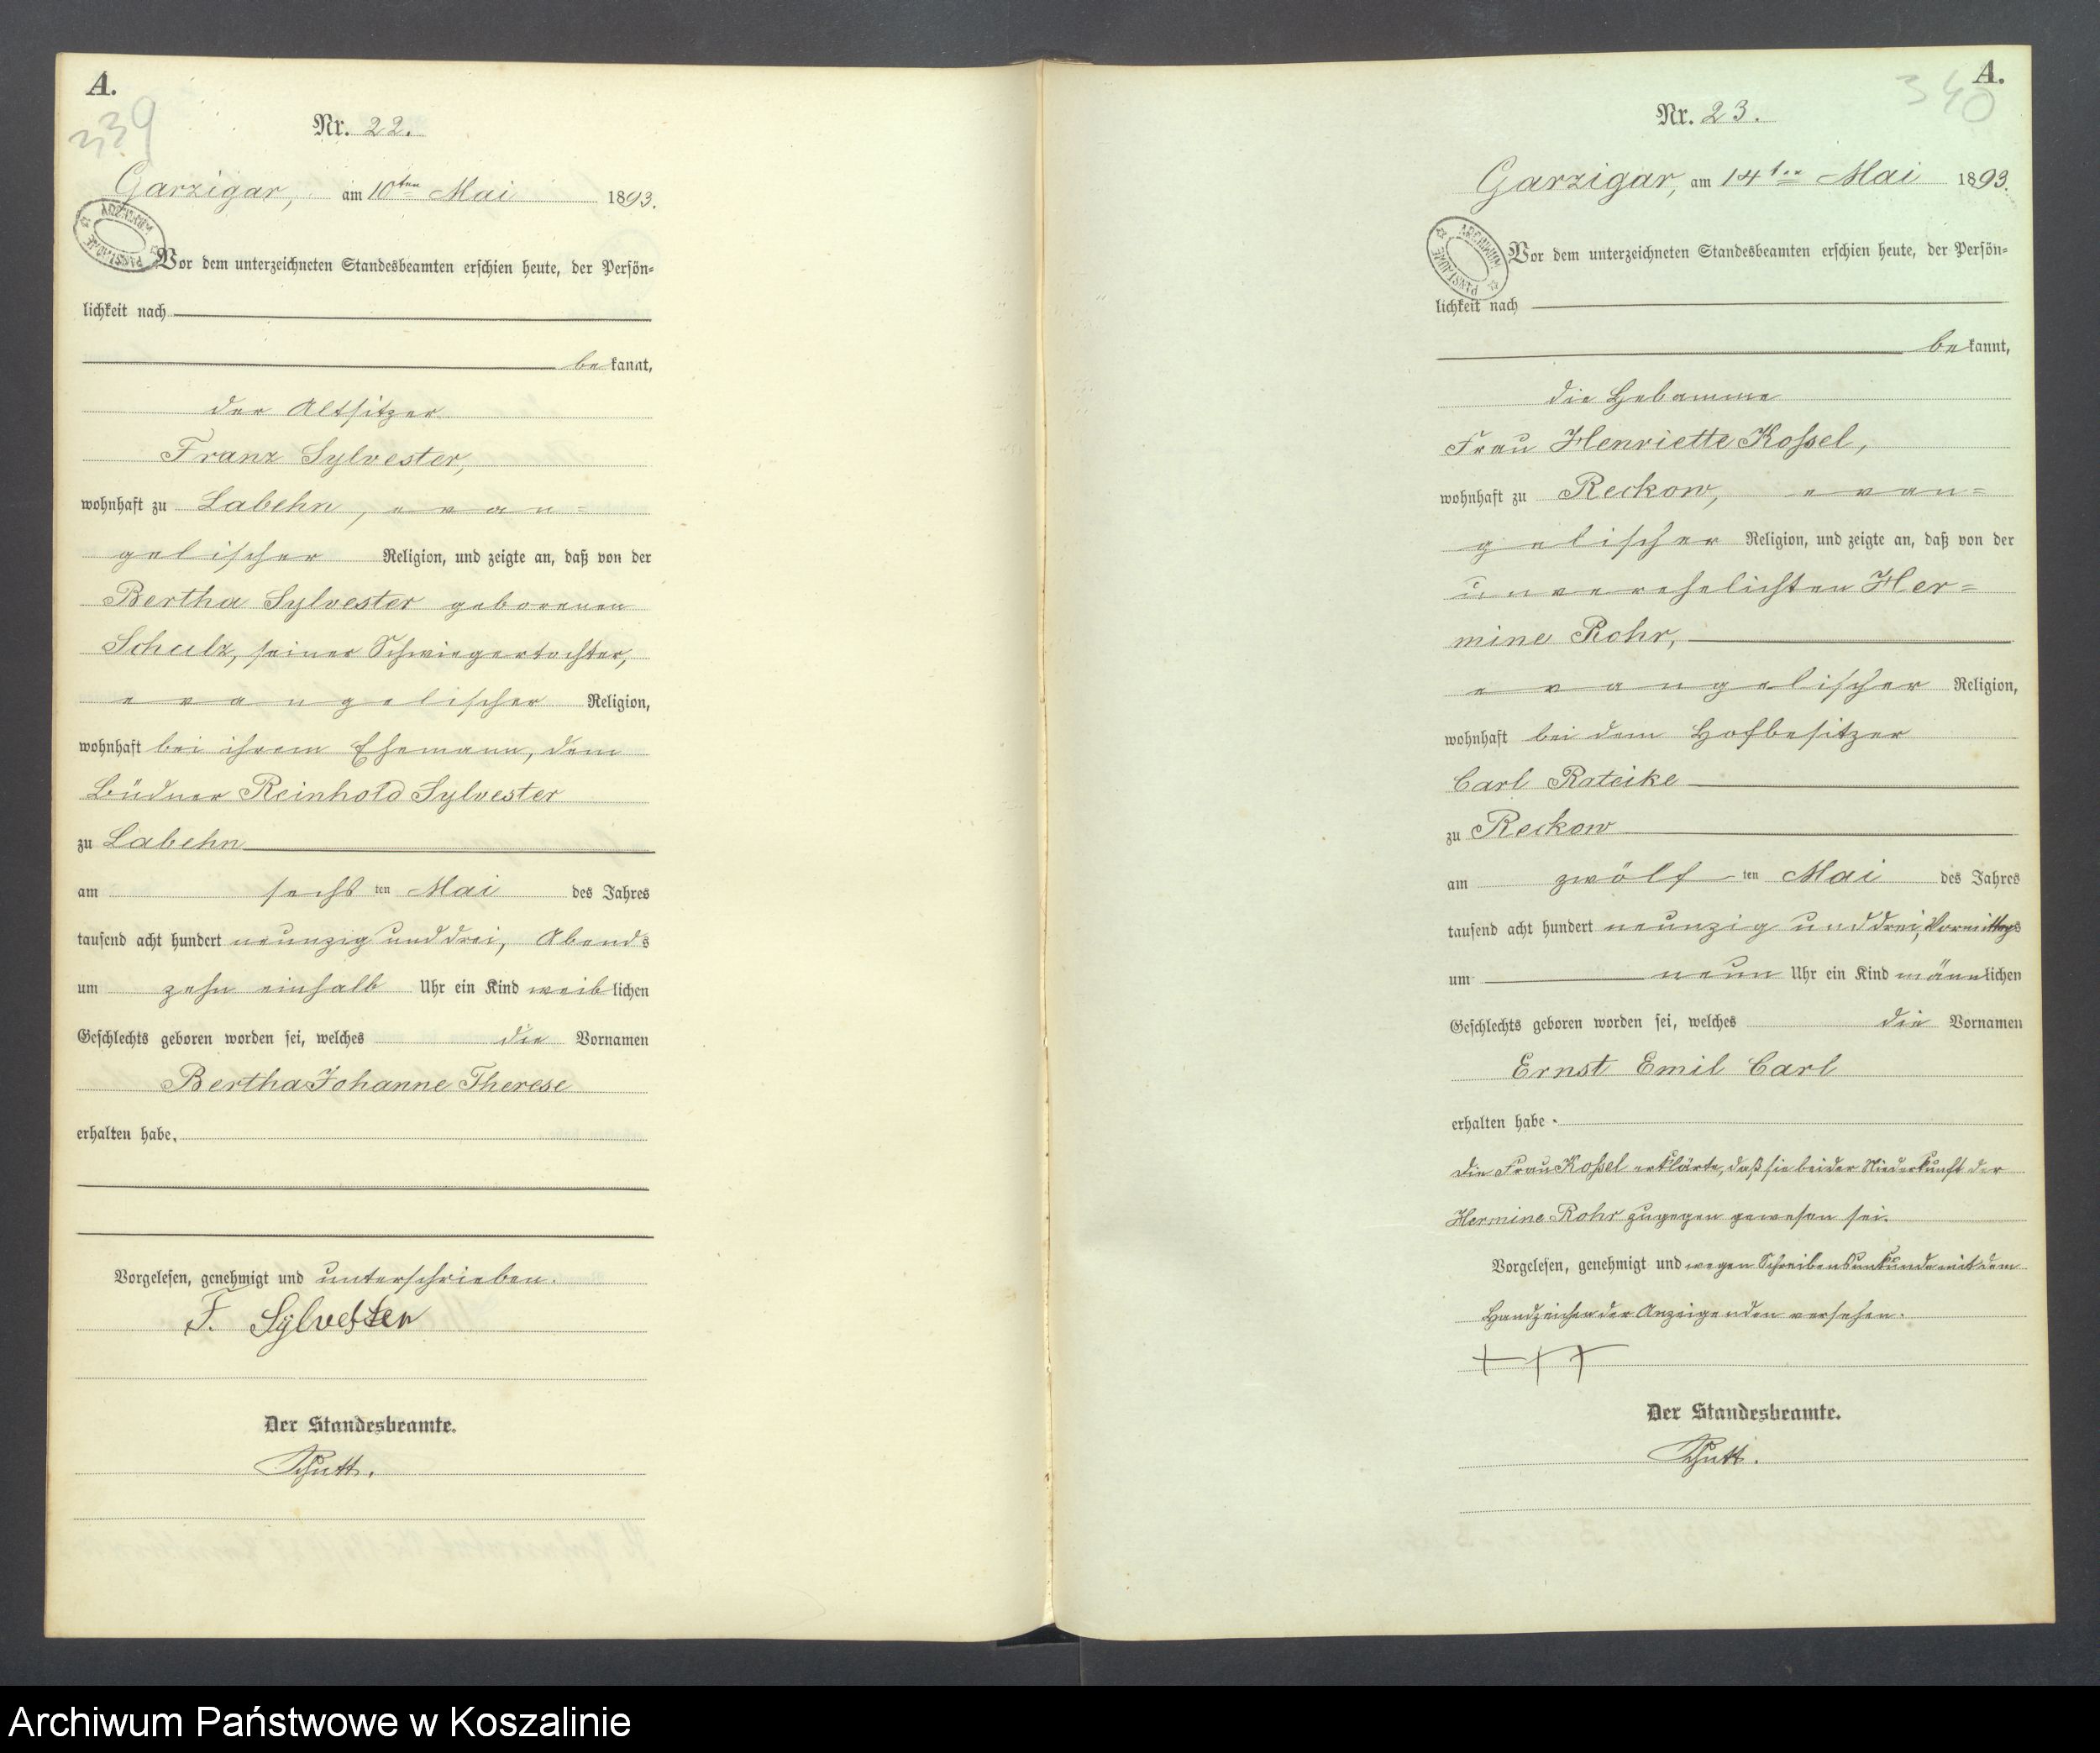 A.
339
Nr. 22.
Garzigar, am 10ten Mai 1893.
ARCHIWUM PAŃSTWOWE
Vor dem unterzeichneten Standesbeamten erschien heute, der Persön=
lichkeit nach
bekannt,
der Altsitzer
Franz Sylvester,
wohnhaft zu Labehn, evan=
gelischer Religion, und zeigte an, daß von der
Bertha Sylvester geborenen
Schulz, seiner Schwiegertochter,
evangelischer Religion,
wohnhaft bei ihrem Ehemann, dem
Büdner Reinhold Sylvester
zu Labehn
am sechsten Mai des Jahres
tausend acht hundert neunzig und drei, Abends
um zehn einhalb Uhr ein Kind weiblichen
Geschlechts geboren worden sei, welches die Vornamen
Bertha Johanne Therese
erhalten habe.
Vorgelesen, genehmigt und unterschrieben.
F. Sylvester
Der Standesbeamte.
A.
340
Nr. 23.
Garzigar, am 14ten Mai 1893.
ARCHIWUM PAŃSTWOWE
Vor dem unterzeichneten Standesbeamten erschien heute, der Persön=
lichkeit nach
bekannt,
die Hebamme
Frau Henriette Koßel,
wohnhaft zu Reckow, evan=
gelischer Religion, und zeigte an, daß von der
unverehelichten Her=
mine Rohr,
evangelischer Religion,
wohnhaft bei dem Hofbesitzer
Carl Rateike
zu Reckow
am zwölften Mai des Jahres
tausend acht hundert neunzig und drei, Vormittags
um neun Uhr ein Kind männlichen
Geschlechts geboren worden sei, welches die Vornamen
Ernst Emil Carl
erhalten habe.
Die Frau Koßel erklärte, daß sie bei der Niederkunft der
Hermine Rohr zugegen gewesen sei.
Vorgelesen, genehmigt und wegen Schreibensunkunde mit dem
Handzeichen der Anzeigenden versehen.
+++
Der Standesbeamte.
Archiwum Państwowe w Koszalinie